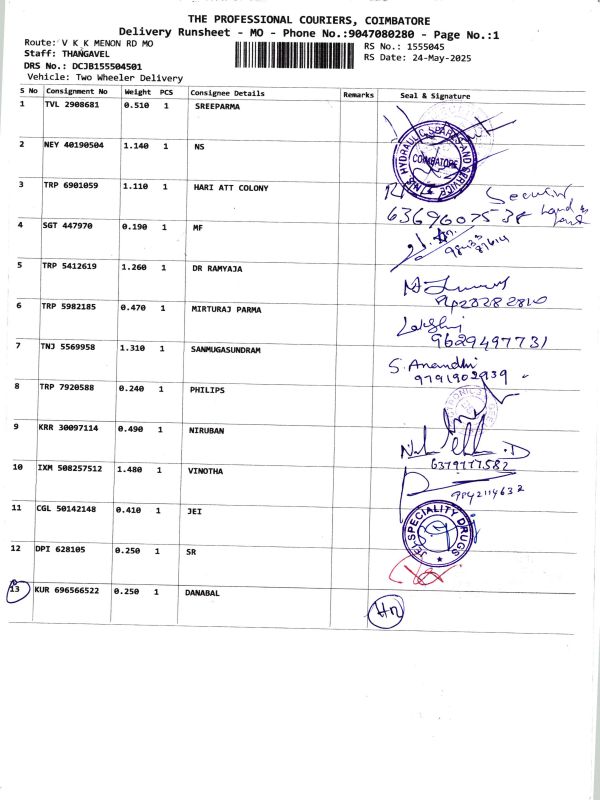 THE PROFESSIONAL COURIERS, COIMBATORE
Delivery Runsheet - MO - Phone No.:9047080280 - Page No.:1
Route: V K K MENON RD MO
RS No.: 1555045
Staff: THANGAVEL
RS Date: 24-May-2025
DRS No.: DCJB155504501
Vehicle: Two Wheeler Delivery
S No Consignment No Weight PCS Consignee Details Remarks Seal & Signature
1 TVL 2908681 0.510 1 SREEPARMA
2 NEY 40190504 1.140 1 NS
HYDRAULIC SPARES AND SERVICE
COIMBATORE
3 TRP 6901059 1.110 1 HARI ATT COLONY
4 SGT 447970 0.190 1 MF
5 TRP 5412619 1.260 1 DR RAMYAJA
6 TRP 5982185 0.470 1 MIRTURAJ PARMA
9629497731
7 TNJ 5569958 1.310 1 SANMUGASUNDRAM
S. Anandhi
9791902939
8 TRP 7920588 0.240 1 PHILIPS
9 KRR 30097114 0.490 1 NIRUBAN
6379777582
10 IXM 508257512 1.480 1 VINOTHA
9942114632
11 CGL 50142148 0.410 1 JEI
JEI SPECIALITY DRUGS
12 DPI 628105 0.250 1 SR
13 KUR 696566522 0.250 1 DANABAL